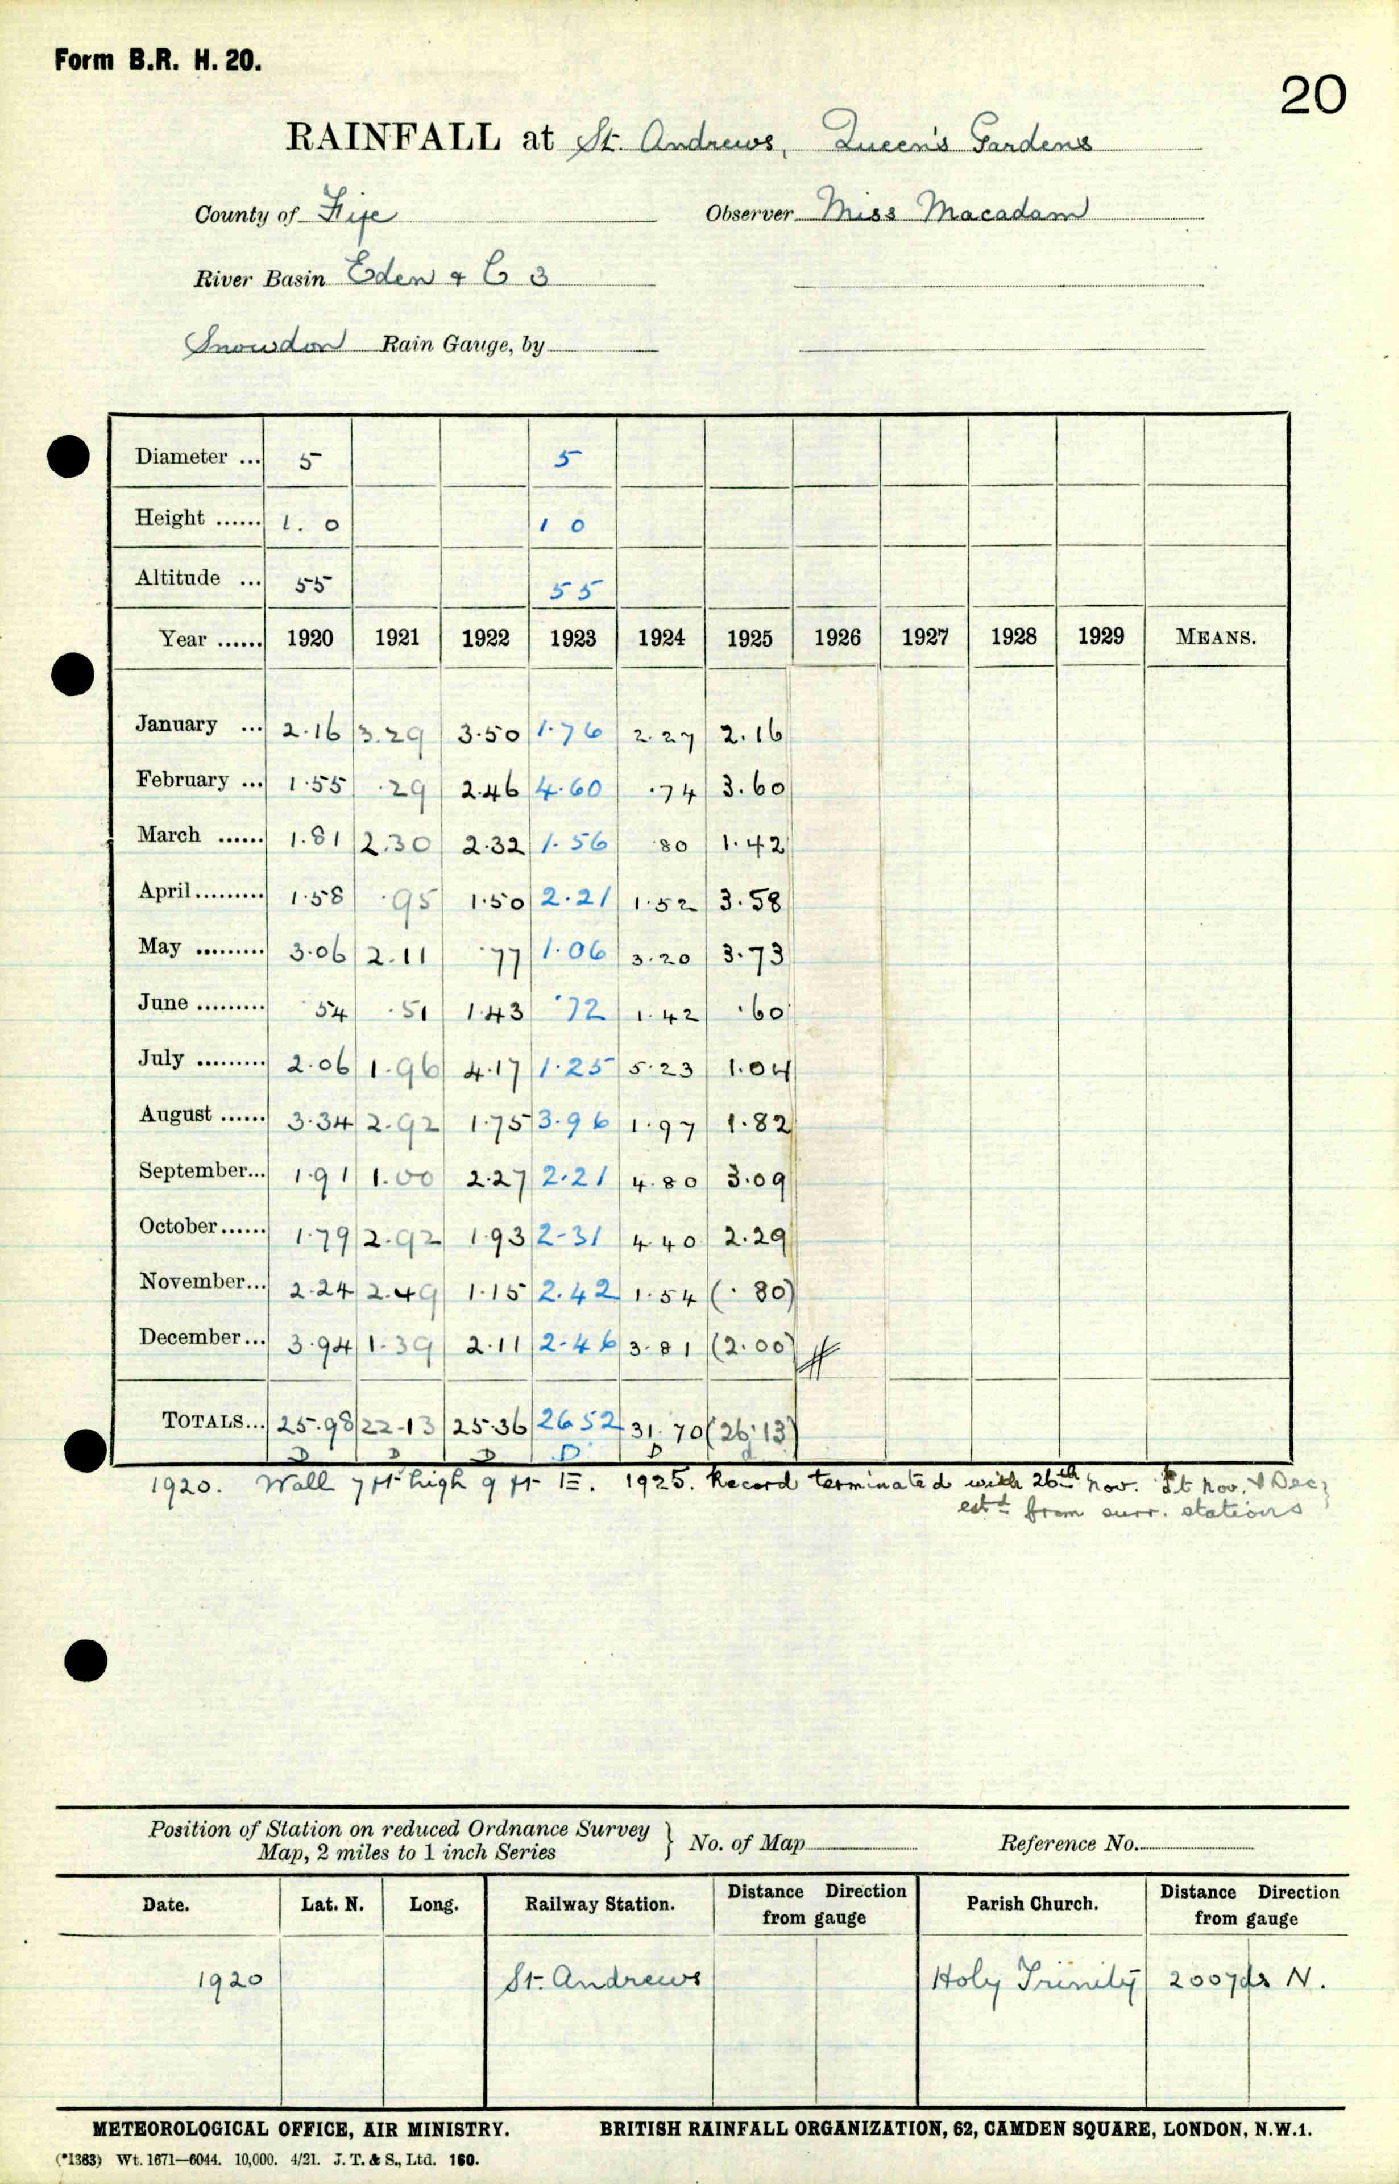 Form B.R. H. 20.
20
RAINFALL at St. Andrews, Queen's Gardens
County of Fife Observer Miss Macadam
River Basin Eden & C 3
Snowdon Rain Gauge, by
Diameter ... 5 5
Height ...... 1. 0 1 0
Altitude ... 55 55
Year ...... 1920 1921 1922 1923 1924 1925 1926 1927 1928 1929 MEANS.
January ... 2.16 3.29 3.50 1.76 2.27 2.16
February ... 1.55 .29 2.46 4.60 .74 3.60
March ...... 1.81 2.30 2.32 1.56 80 1.42
April......... 1.58 .95 1.50 2.21 1.52 3.58
May ......... 3.06 2.11 .77 1.06 3.20 3.73
June ......... 54 .51 1.43 .72 1.42 .60
July ......... 2.06 1.96 4.17 1.25 5.23 1.04
August ...... 3.34 2.92 1.75 3.96 1.97 1.82
September... 1.91 1.00 2.27 2.21 4.80 3.09
October...... 1.79 2.92 1.93 2-31 4.40 2.29
November... 2.24 2.49 1.15 2.42 1.54 (.80)
December... 3.94 1.39 2.11 2.46 3.81 (2.00)
TOTALS... 25.98 22.13 25.36 26 52 31.70 (26.13)
D D D D D d
1920. Wall 7 ft high 9 ft E. 1925. Record terminated with 26th Nov. Pt Nov. & Dec
estd from surr. stations
Position of Station on reduced Ordnance Survey
Map, 2 miles to 1 inch Series } No. of Map Reference No.
Date. Lat. N. Long. Railway Station. Distance Direction from gauge Parish Church. Distance Direction from gauge
1920 St. Andrews Holy Trinity 200yds N.
METEOROLOGICAL OFFICE, AIR MINISTRY. BRITISH RAINFALL ORGANIZATION, 62, CAMDEN SQUARE, LONDON, N.W.1.
(*1383) Wt. 1671—6044. 10,000. 4/21. J. T. & S., Ltd. 160.